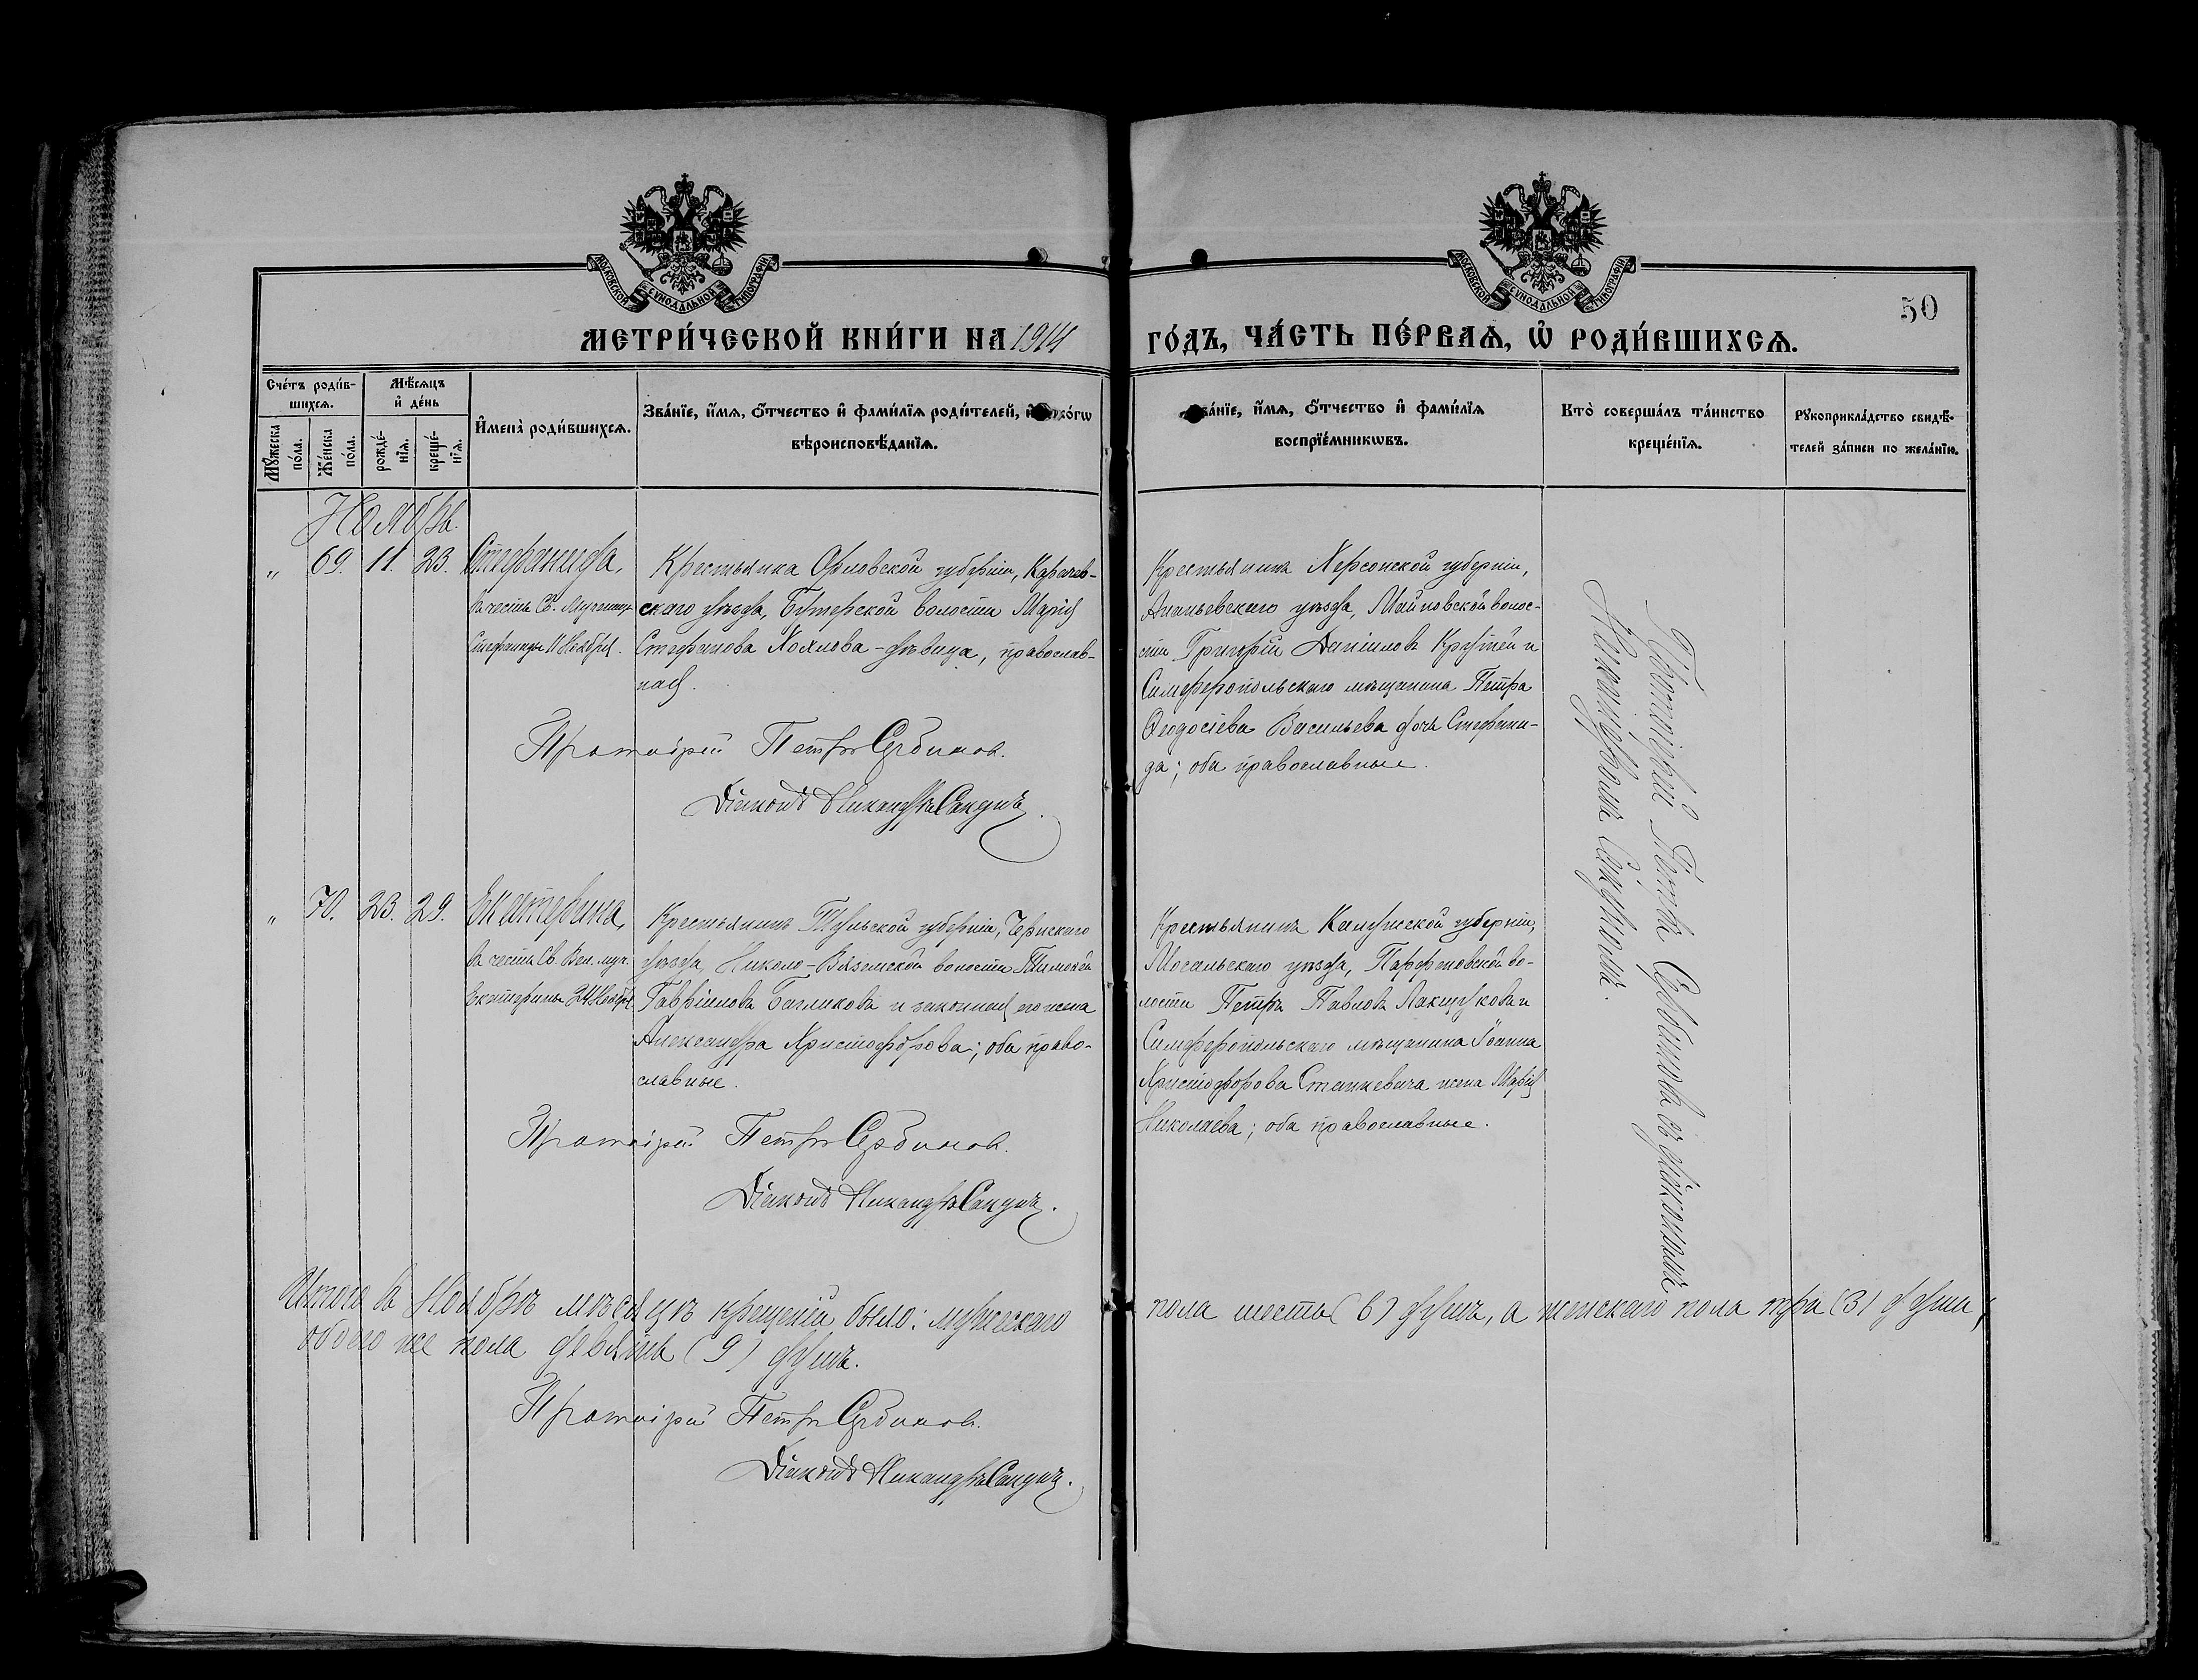 МОСКОВСКОЙ СѴНОДАЛЬНОЙ ТИПОГРАФІИ
МОСКОВСКОЙ СѴНОДАЛЬНОЙ ТИПОГРАФІИ
50
МЕТРИ́ЧЕСКОЙ КНИ́ГИ НА 1914
ГО́ДЪ, ЧА́СТЬ ПЕ́РВАѦ, Ѡ҆ РОДИ́ВШИХСѦ.
Сче́тъ роди́в-
шихсѧ.
Мѣ́сѧцъ
и҆ де́нь
Мꙋ́жеска
по́ла.
Же́нска
по́ла.
рожде́-
нїѧ.
креще́-
нїѧ.
И҆мена̀ роди́вшихсѧ.
Зва́нїе, и҆́мѧ, ѻ҆́тчество и҆ фами́лїѧ роди́телей, и҆ ко́гѡ
вѣроисповѣ́данїѧ.
ва́нїе, и҆́мѧ, ѻ҆́тчество и҆ фами́лїѧ
воспрїе́мникѡвъ.
Кто̀ соверша́лъ та́инство
креще́нїѧ.
Рꙋкоприкла́дство свидѣ́-
телей за́писи по жела́нїю.
Ноябрь.
„ 69. 11. 23. Стефанида,
въ честь Св. Мучениц.
Стефаниды 11 Ноября.
Крестьянка Орловской губерніи, Карачев-
скаго уѣзда, Бутерской волости Марія
Стефанова Хохлова-дѣвица, православ-
ная.
Протоіерей Петръ Сербиновъ.
Діаконъ Никандръ Сакунъ.
Крестьянинъ Херсонской губерніи,
Ананьевскаго уѣзда, Майновской волос-
ти Григорій Даніиловъ Крутей и
Симферопольскаго мѣщанина Петра
Ѳеодосіева Васильева дочь Стефани-
да; оба православные.
Протоіерей Петръ Сербиновъ съ діакономъ
Никандромъ Сакуномъ.
„ 70. 23. 29. Екатерина,
въ честь Св. Вел. муч.
Екатерины 24 Ноября
Крестьянинъ Тульской губерніи, Чернскаго
уѣзда, Николо-Вяземской волости Тимоѳей
Гавріиловъ Багликовъ и законная его жена
Александра Христофорова; оба право-
славные.
Протоіерей Петръ Сербиновъ.
Діаконъ Никандръ Сакунъ.
Крестьянинъ Калужской губерніи,
Мосальскаго уѣзда, Парфеновской во-
лости Петръ Павловъ Лакцуковъ и
Симферопольскаго мѣщанина Іоанна
Христофорова Станкевича жена Марія
Николаева; оба православные.
Итого въ Ноябрѣ мѣсяцѣ крещеній было: мужескаго
пола шесть (6) душъ, а женскаго пола три (3) души,
обоего же пола девять (9) душъ.
Протоіерей Петръ Сербиновъ.
Діаконъ Никандръ Сакунъ.